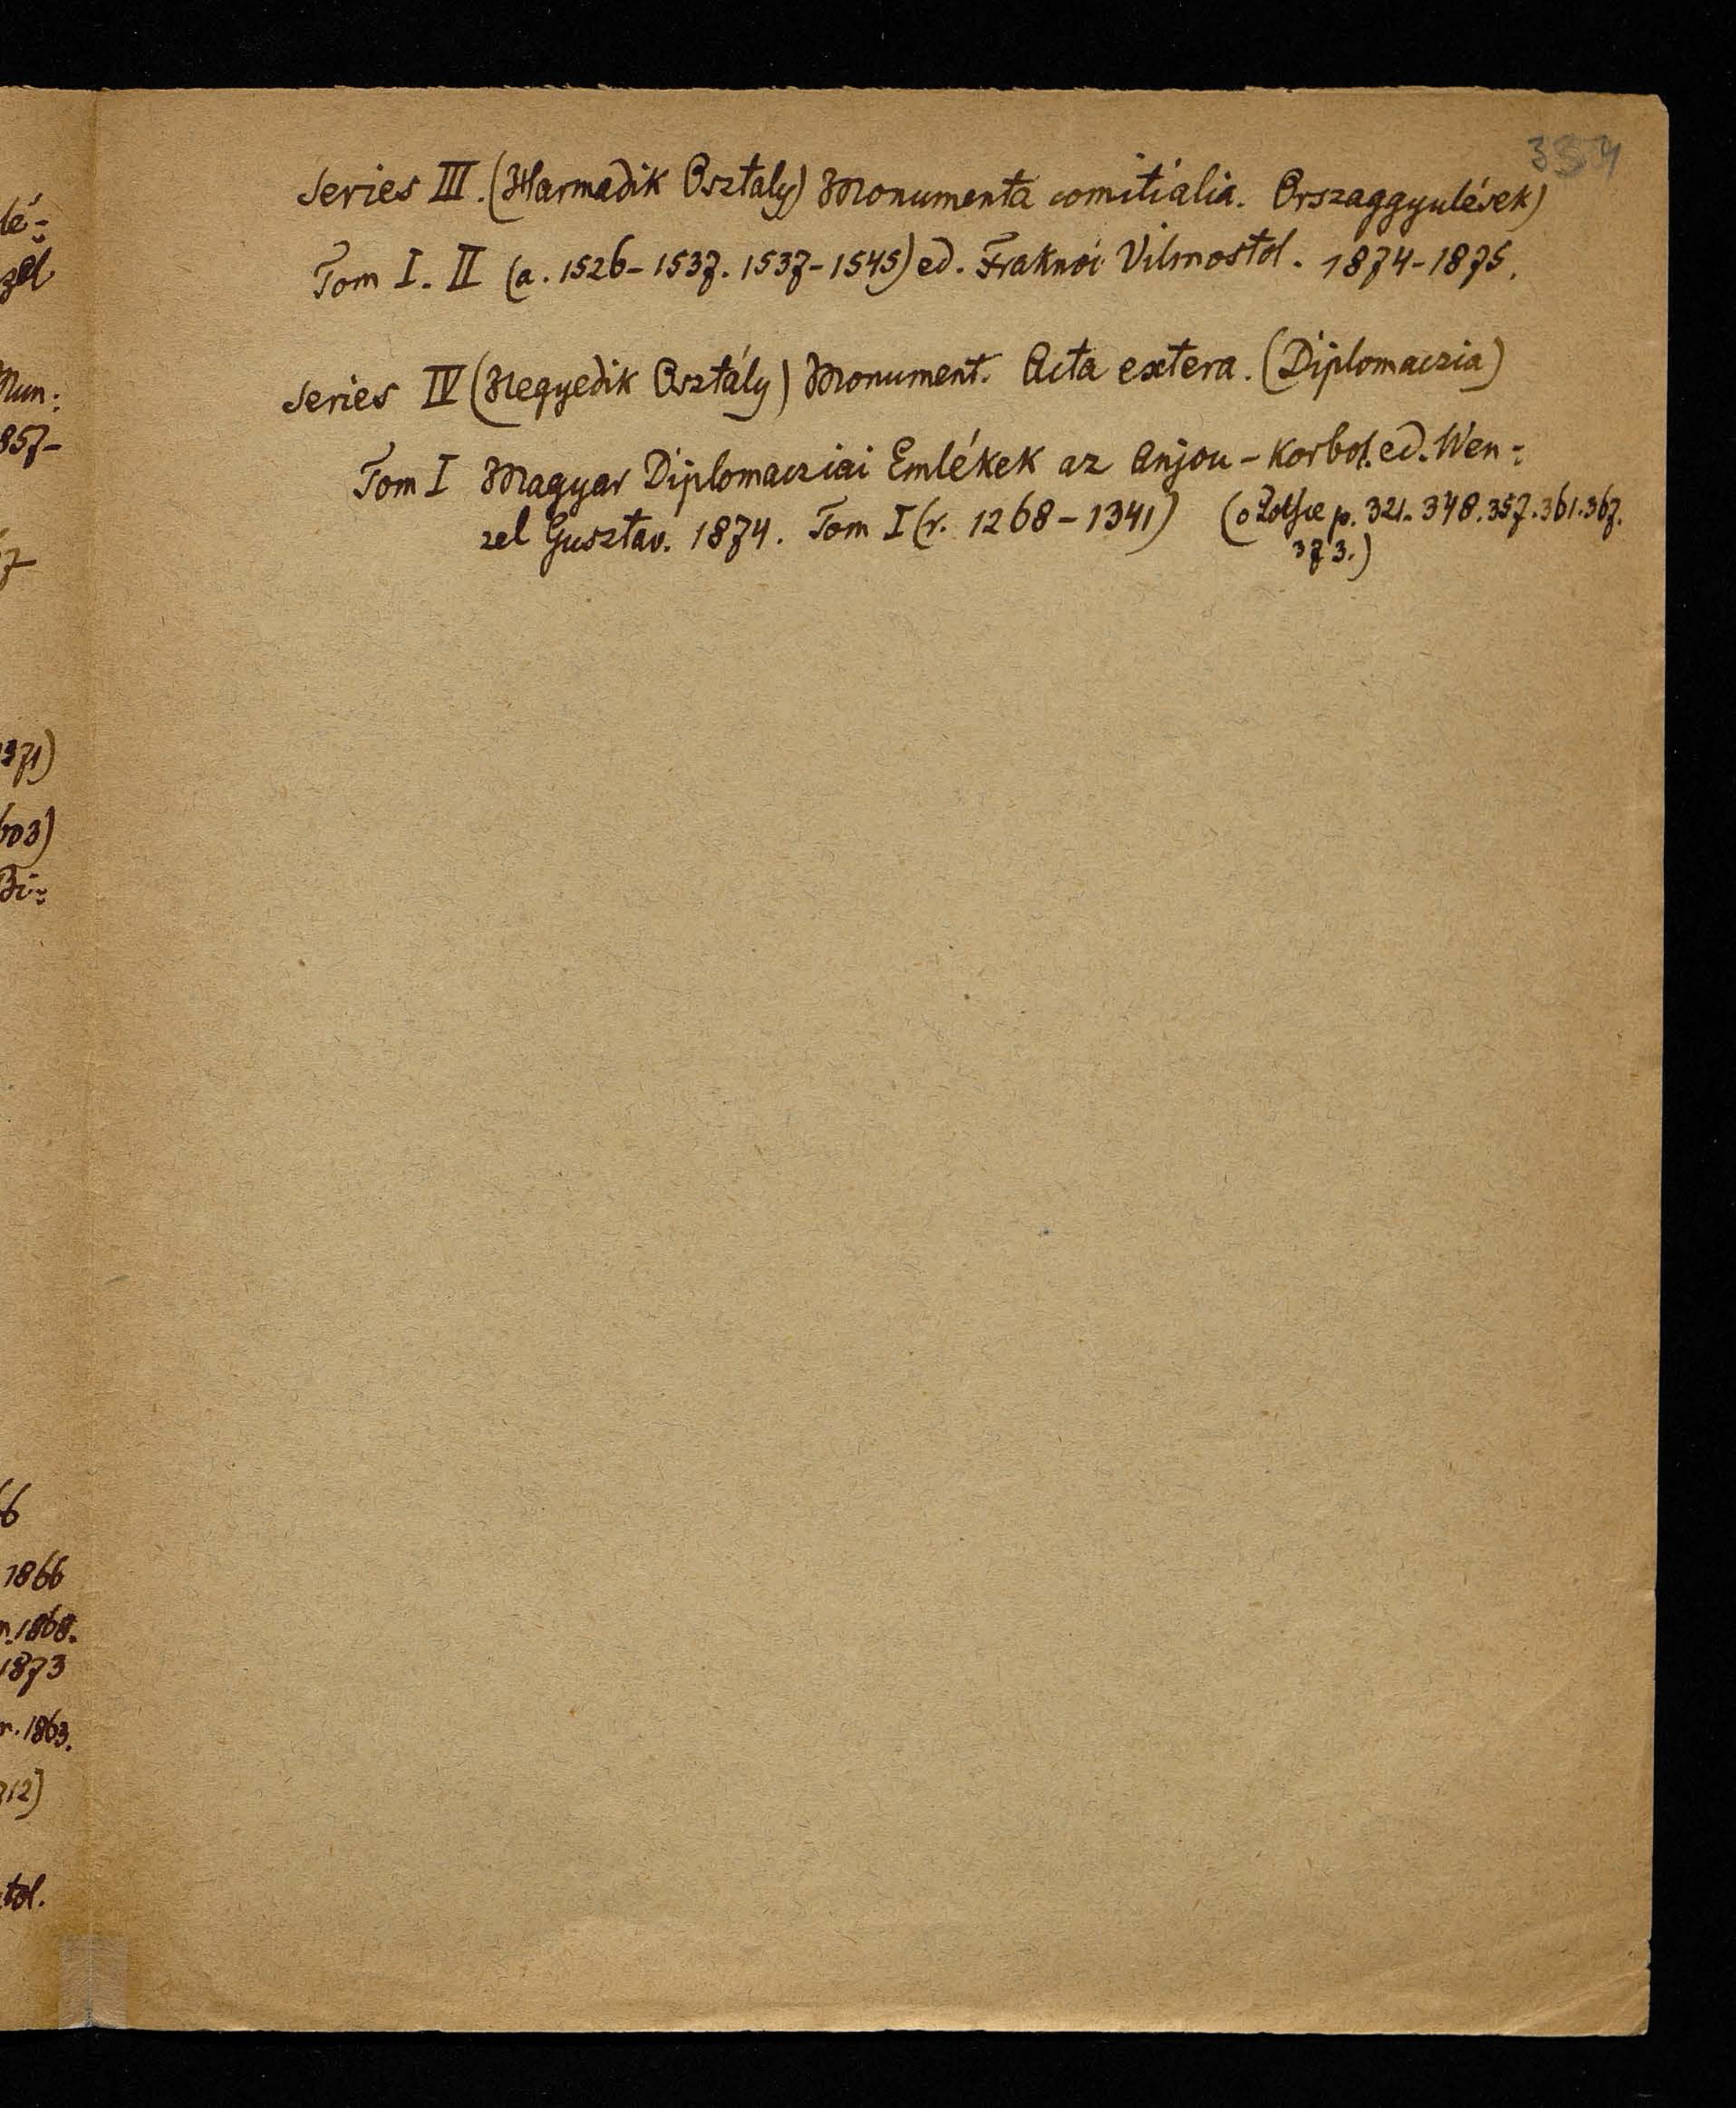 334
Series III. (Harmadik Osztaly) Monumenta comitialia. Orszaggyulések)
Tom I. II (a. 1526-1537. 1537-1545) ed. Fraknoi Vilmostol. 1874-1875.
Series IV (Negyedik Osztály) Monument. Acta extera. (Diplomaczia)
Tom I Magyar Diplomacziai Emlékek az Anjou-korbol. ed. Wen-
zel Gusztav. 1874. Tom I (r. 1268-1341) (o Polsce p. 321. 348. 357. 361. 367.
373.)
lé-
zel
Mun:
857-
7-
371)
603)
Bi-
66
1866
n. 1868.
1873
r. 1863.
712)
tol.